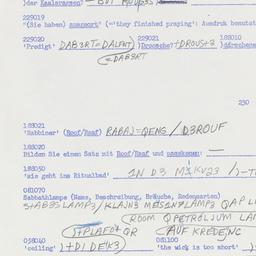 )der Kaalsramen?
229019
"(Sie haben) ausgeort" (='they finished praying': Ausdruck benutzt
229020 229021 183010
'Predigt' DAB3RT=DALENT) )Droosche?+DROUS+3 )dureheme
=DAB3RT
230
183021
'Rabbiner' (Roof/Raaf) RABAJ=QENS / D3ROUF
183020
Bilden Sie einen Satz mit Roof/Raaf und paaskenen:
183050
'sie geht ins Ritualbad' 1N D3
081070
Sabbathlampe (Name, Beschreibung, Bräuche, Redensarten)
S+AB3SLAMP3 / KLAJN3 MESIN3LAMP3 QAP
(ROOM QPETROLJUM LAM
S+PLAFO+ OR (AUF KREDEJNC
038040 081100
'ceiling' )+DI DEK3) 'the wick is too short' )